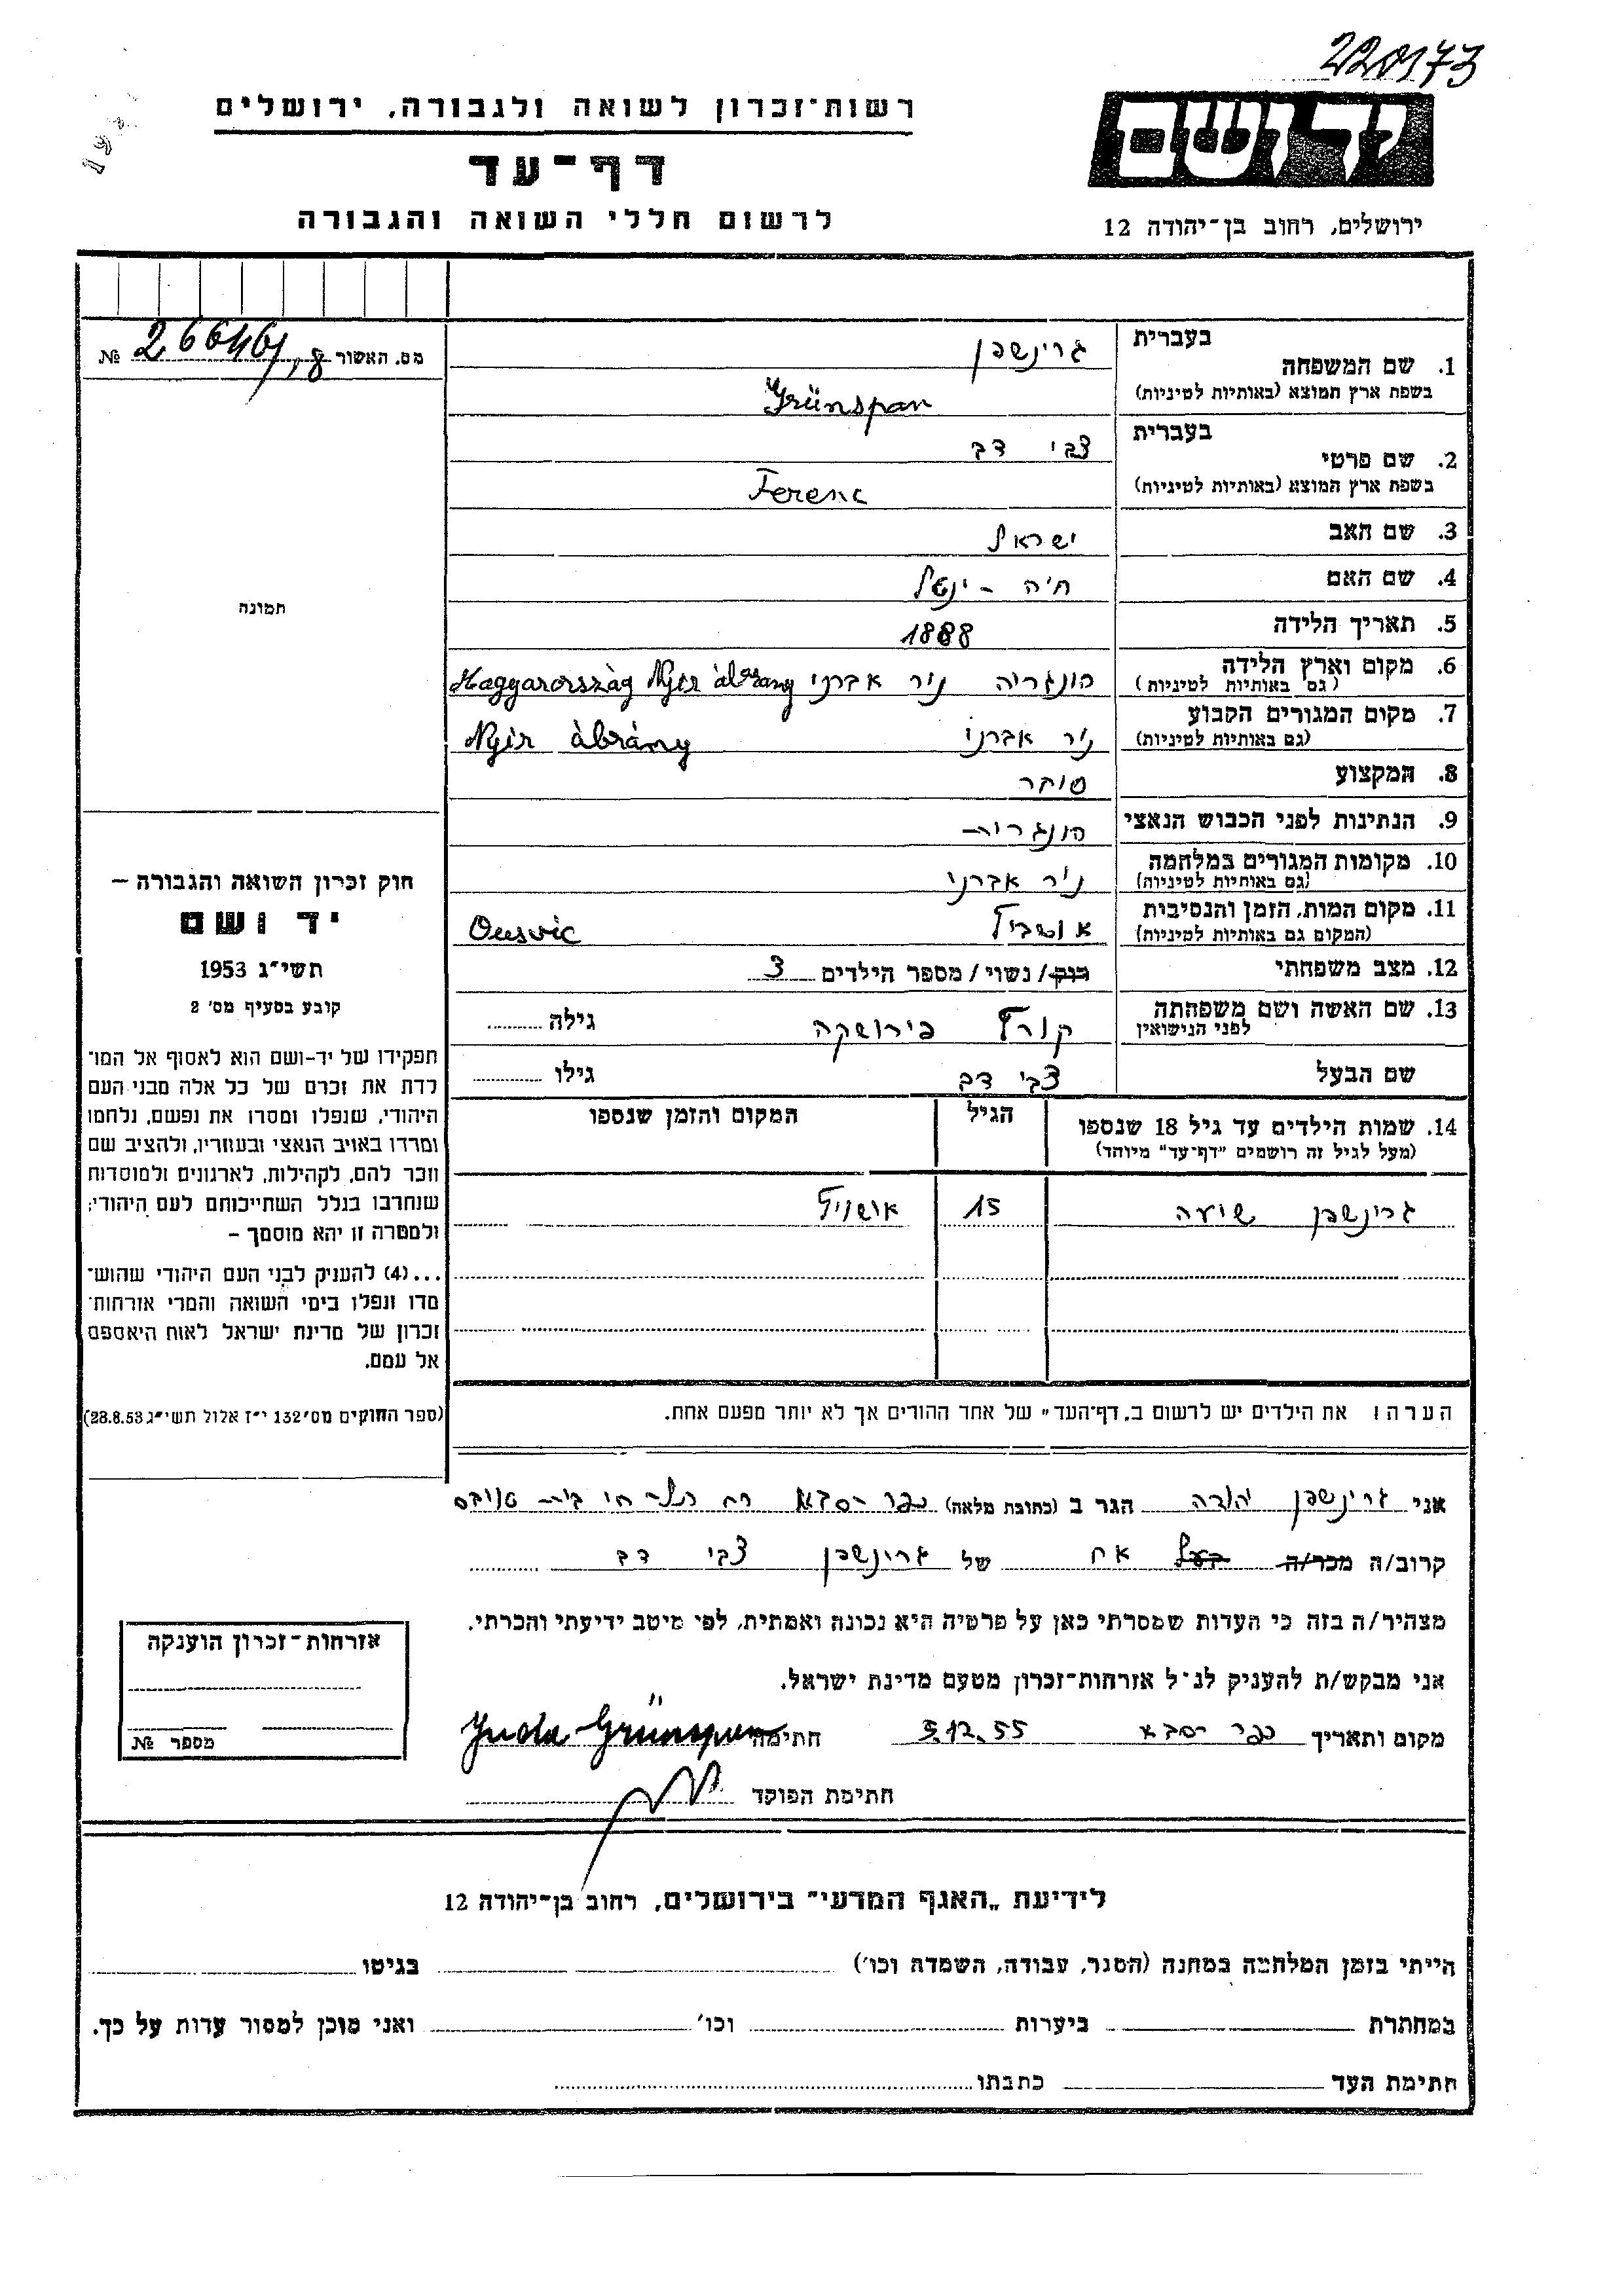 220173
רשות־זכרון לשואה ולגבורה, ירושלים
יד ושם
דף־עד
לרשום חללי השואה והגבורה
ירושלים, רחוב בן־יהודה 12
מס. האשור № 26646/,8
בעברית
1. שם המשפחה גרינשפן
בשפת ארץ המוצא (באותיות לטיניות) Grünspan
בעברית
2. שם פרטי צבי דב
בשפת ארץ המוצא (באותיות לטיניות) Ferenc
3. שם האב ישראל
4. שם האם חיה - ינטל
5. תאריך הלידה 1888
6. מקום וארץ הלידה (גם באותיות לטיניות) הונגריה ניר אברני Magyarország Nyir àbrány
7. מקום המגורים הקבוע (גם באותיות לטיניות) ניר אברני Nyir àbrány
8. המקצוע סוחר
9. הנתינות לפני הכבוש הנאצי הונגרית
10. מקומות המגורים במלחמה (גם באותיות לטיניות) ניר אברני
11. מקום המות, הזמן והנסיבות (המקום גם באותיות לטיניות) אושביץ Ousvic
12. מצב משפחתי רוק/נשוי/ מספר הילדים 3
13. שם האשה ושם משפחתה לפני הנישואין קורץ פירושקה גילה
שם הבעל צבי דב גילו
14. שמות הילדים עד גיל 18 שנספו הגיל המקום והזמן שנספו
(מעל לגיל זה רושמים "דף־עד" מיוחד)
גרינשפן שועה 15 אושויץ
הערה: את הילדים יש לרשום ב„דף־העד" של אחד ההורים אך לא יותר מפעם אחת.
תמונה
חוק זכרון השואה והגבורה –
יד ושם
תשי״ג 1953
קובע בסעיף מס' 2
תפקידו של יד-ושם הוא לאסוף אל המו־
לדת את זכרם של כל אלה מבני העם
היהודי, שנפלו ומסרו את נפשם, נלחמו
ומרדו באויב הנאצי ובעוזריו, ולהציב שם
וזכר להם, לקהילות, לארגונים ולמוסדות
שנחרבו בגלל השתייכותם לעם היהודי;
ולמטרה זו יהא מוסמך –
...(4) להעניק לבני העם היהודי שהוש־
מדו ונפלו בימי השואה והמרי אזרחות־
זכרון של מדינת ישראל לאות היאספם
אל עמם.
(ספר החוקים מס' 132 י״ז אלול תשי״ג 28.8.53)
אני גרינשפן יהודה הגר ב (כתובת מלאה) כפר-סבא רח תל-חי בית
קרוב/ה מכר/ה אח של גרינשפן צבי דב
מצהיר/ה בזה כי העדות שמסרתי כאן על פרטיה היא נכונה ואמתית, לפי מיטב ידיעתי והכרתי.
אני מבקש/ת להעניק לנ״ל אזרחות־זכרון מטעם מדינת ישראל.
מקום ותאריך כפר-סבא 5.12.55 חתימה Juda Grünspan
חתימת הפוקד
אזרחות־זכרון הוענקה
מספר №
לידיעת „האגף המדעי" בירושלים, רחוב בן־יהודה 12
הייתי בזמן המלחמה במחנה (הסגר, עבודה, השמדה וכו') בגיטו
במחתרת ביערות וכו' ואני מוכן למסור עדות על כך.
חתימת העד כתבתו